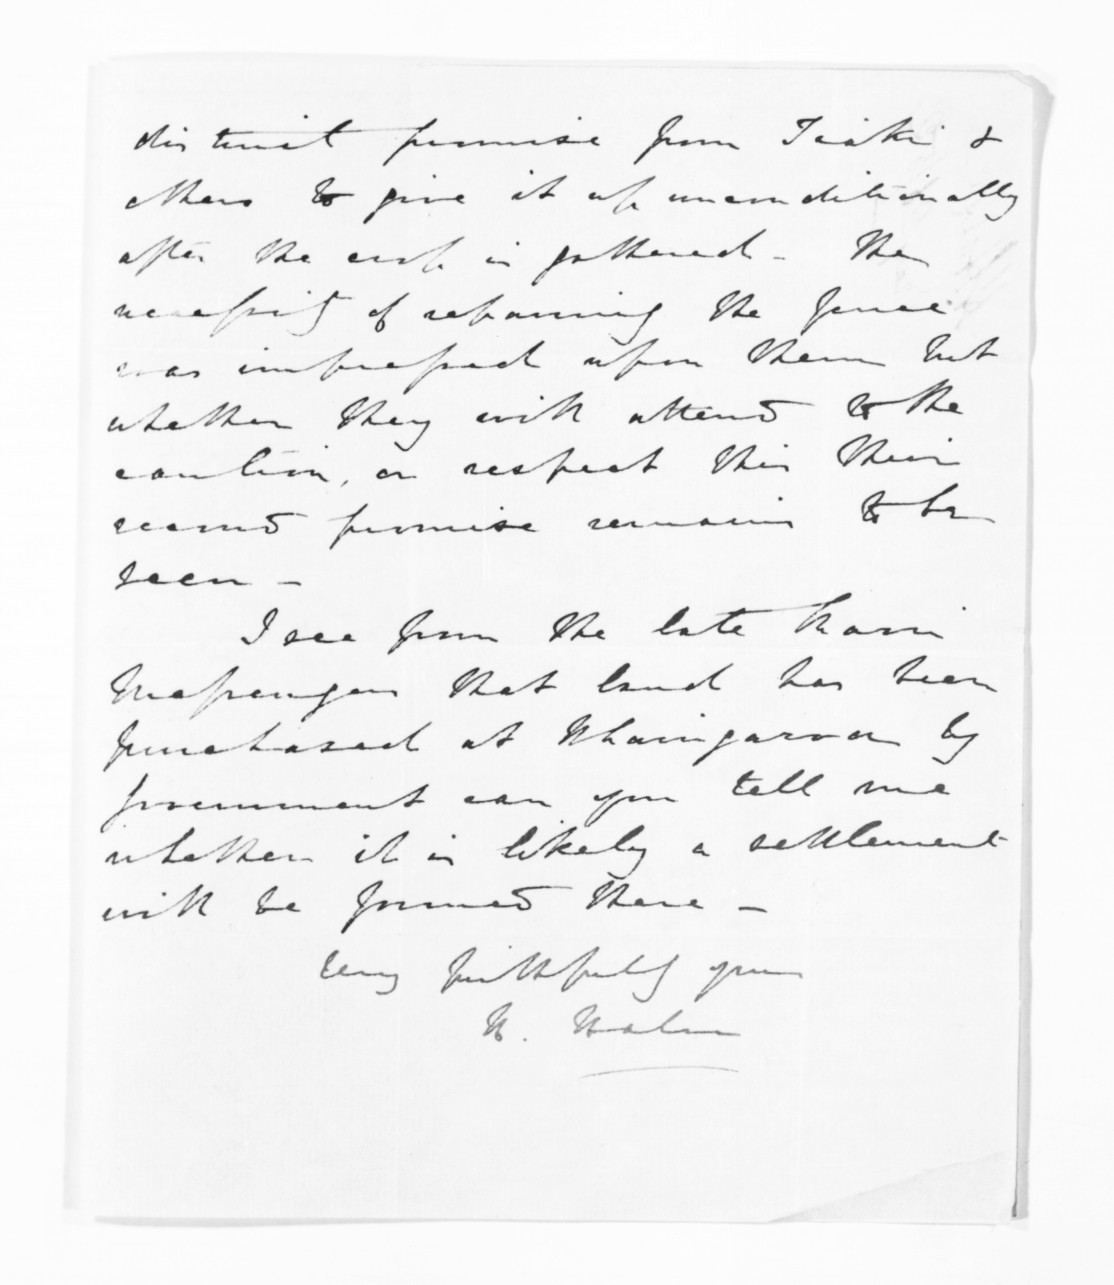 distinct promise from Tiaki &
others to give it up unconditionally
after the crop is gathered - The
necessity of repairing the fence
was impressed upon them but
whether they will attend to the
caution, or respect this their
second promise remains to be
seen -
I see from the late Maori
Messenger that land has been
purchased at Whaingaroa by
Government can you tell me
whether it is likely a settlement
will be formed there -
Very faithfully yours